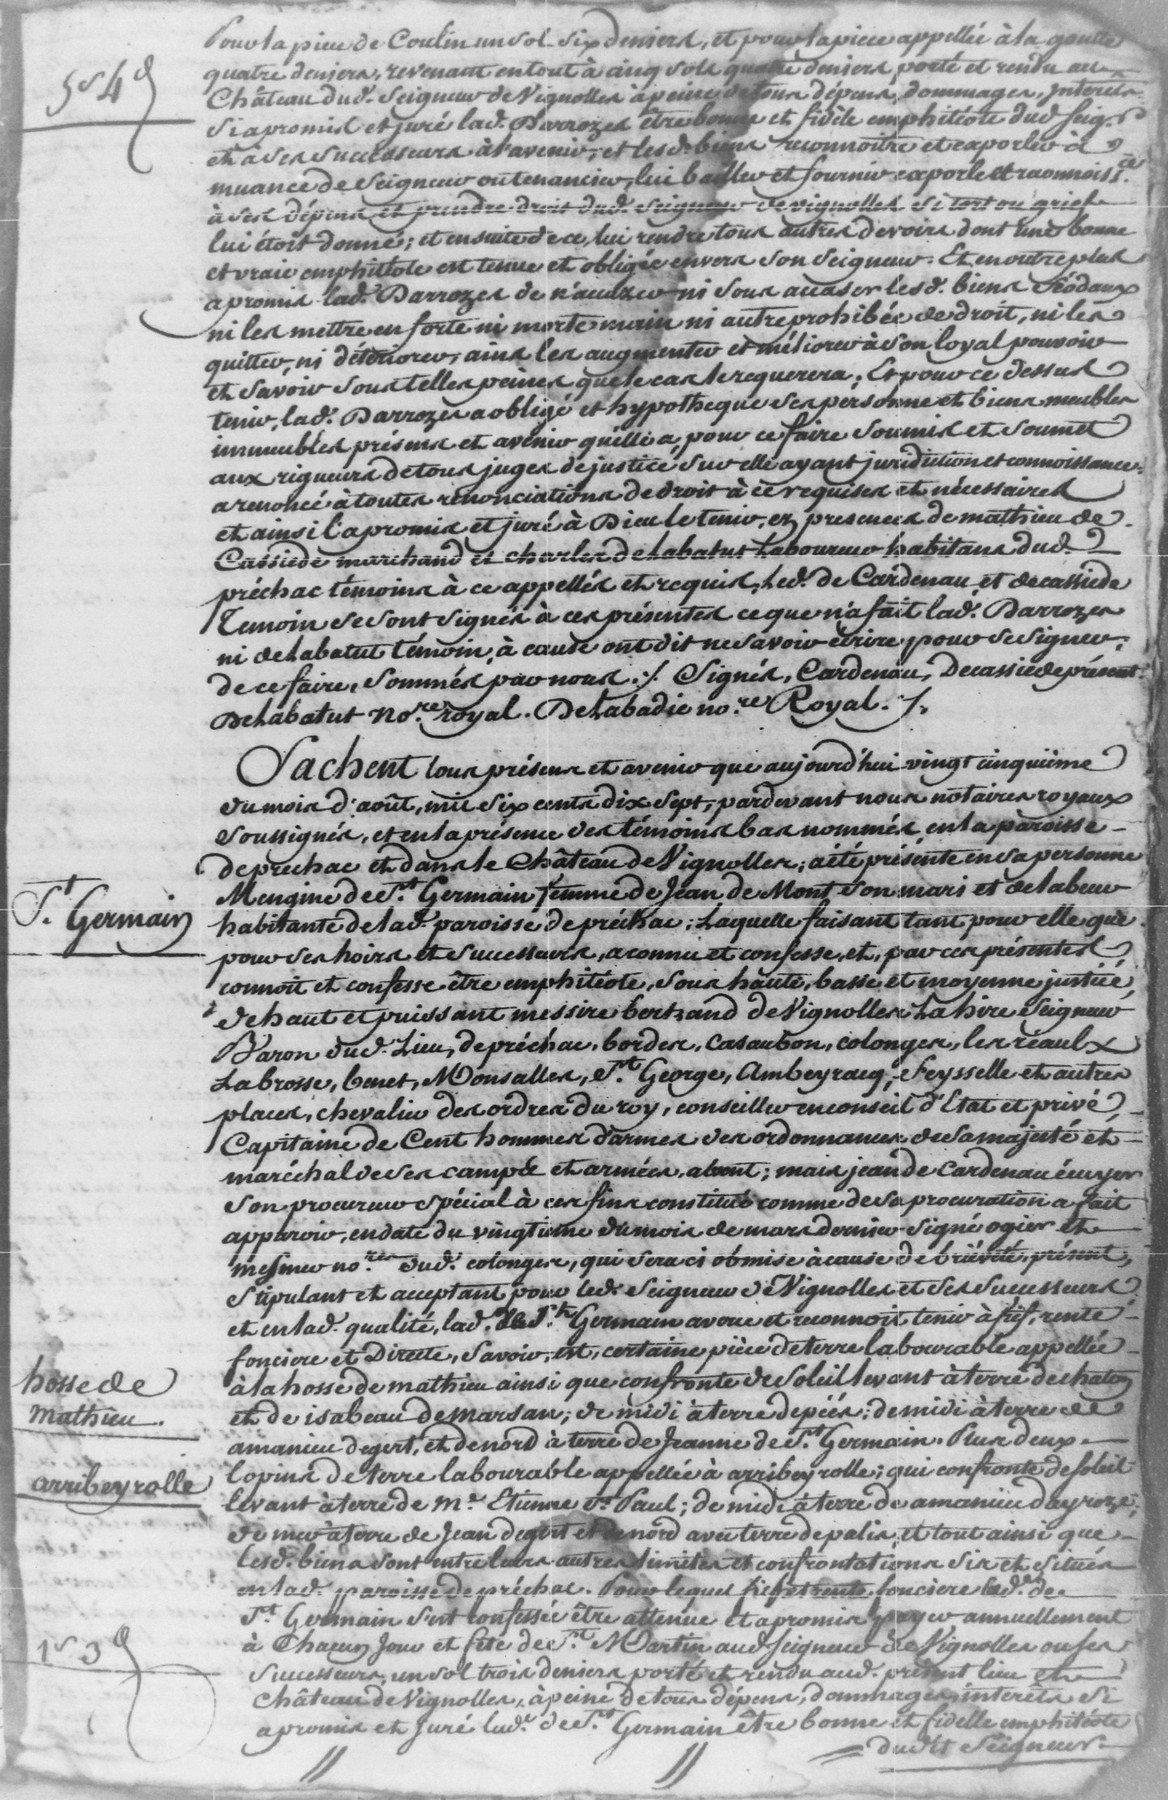 Pour la piece de Coulin un sol six deniers, et pour la piece appellée à la goutte
5s 4d
quatre deniers, revenant en tout à cinq sols quatre deniers porté et rendu au
Château dud. Seigneur de Vignolles à peine de tous dépens, dommages, Interets
Si a promis et juré lad. Darrozes être bonne et fidèle emphitéote dud Seigr.
et à ses successeurs à l'avenir, et lesd. biens reconnoitre et exporler à
muance de Seigneur ou tenancier, lui bailler et fournir exporle et reconnoissce.
à ses dépens et prendre droit dud. Seigneur de vignolles si tort ou grief
lui étoit donné; et ensuite de ce, lui rendre tous autres devoirs dont une bonne
et vraie emphitéote est tenue et obligée envers son Seigneur. Et en outre plus
a promis lad. Darrozes de n'aculzer ni sous acaser lesd. biens féodaux
ni les mettre en forte ni morte main ni autre prohibée de droit, ni les
quitter, ni détériorer, ains les augmenter et méliorer à son loyal pouvoir
et savoir sous telles peines que le cas le requerera. Et pour ce dessus
tenir, lad. Darrozes a obligé et hypotheque ses personne et biens meubles
immeubles présens et avenir qu'elle a, pour ce faire soumis et soumet
aux rigueurs de tous juges de justice, sur elle ayant juridiction et connoissance.
a renoncé à toutes renonciations de droit à ce requises et nécessaires
et ainsi l'a promis et juré à Dieu le tenir, ez presences de mathieu de
Cassiede marchand et charles de Labatut Laboureur habitans dud.
préchac témoins à ce appellés et requis, Led. de Cardenau et decassiede
Temoin se sont signés à ces présentes ce que n'a fait lad. Darrozes
ni de Labatut témoin, à cause ont dit ne savoir écrire pour se signer,
de ce faire, sommés par nous ./. Signés, Cardenau, Decassiede présent
Delabatut nore. royal. Delabadie no.re Royal. ./.
Sachent tous présens et avenir que aujourd'hui vingt cinquième
du mois d'août, mil six cents dix sept, pardevant nous notaires royaux
soussignés, et en la présence des témoins bas nommés, en la paroisse
de prechac et dans le Château de Vignolles, a été présente en sa personne
St. Germain
Mengine de St. Germain femme de Jean de Mont son mari et de labeur
habitante de lad. paroisse de préchac; Laquelle faisant tant pour elle que
pour ses hoirs et successeurs, a connu et confesse, et, par ces présentes
connoit et confesse être emphitéote, sous haute, basse et moyenne justice
de haut et puissant messire bertrand de Vignolles Lahire Seigneur
Baron dud. Lieu, de préchac, bordes, Casaubon, colonges, les réaulx
Labrosse, benet, Monsalles, St. George, Ambeyracq, Feysselle et autres
places, chevalier des ordres du roy, conseiller en conseil d'Etat et privé,
Capitaine de Cent hommes d'armes des ordonnances de sa majesté et
maréchal de ses camps et armées, absent; mais jean de Cardenau écuyer
son procureur spécial à ces fins constitué comme de sa procuration a fait
apparoir, en date du vingtième du mois de mars dernier signé ogier et
mesmer no.res dud. colonges, qui sera ci obmise à cause de briéveté, présent,
stipulant et acceptant pour led. Seigneur de Vignolles et ses successeurs
et en lad. qualité, lad. de St. Germain avoue et reconnoit tenir à fief, rente
fonciere et Directe, savoir, est, certaine pièce de terre labourable appellée
hosse de
mathieu.
à la hosse de mathieu ainsi que confronte de soleil levant à terre de
et de isabeau de marsan; de midi à terre de ; de midi à terre de
amanieu degert, et de nord à terre de Jeanne de St. Germain. Plus deux
arribeyrolle
lopins de terre labourable appellée à arribeyrolle; qui confronte de soleil
levant à terre de Me. Etienne St. Paul; de midi à terre de amanieu dayroze;
de mer à terre de Jean degert et de nord avec terre de palis, et tout ainsi que
lesd. biens sont entre leurs autres limites et confrontations sis et situés
en lad. paroisse de préchac. Pour lequel fief et rente fonciere lad. de
St. Germain s'est confessée être attenue et a promis payer annuellement
1s 3d
à Chacun jour et fête de St. Martin aud Seigneur de Vignolles ou ses
successeurs, un sol trois deniers porté et rendu aud. présent lieu et
château de Vignolles, à peine de tous dépens, dommages, intérêts si
a promis et juré lad. de St. Germain être bonne et fidelle emphitéote
dudit Seigneur